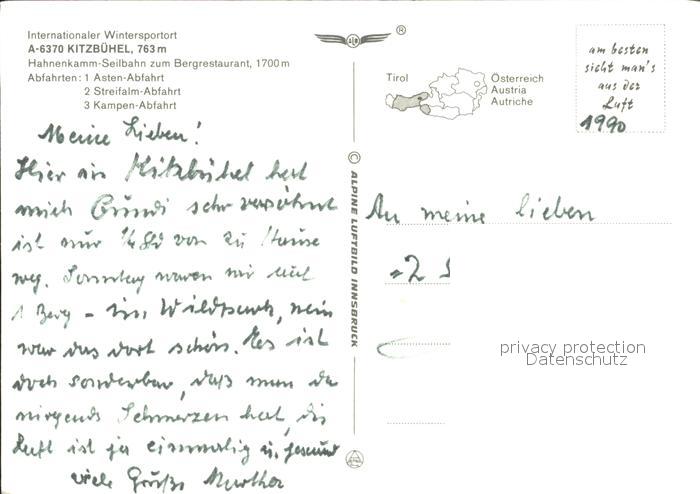 Internationaler Wintersportort
A-6370 KITZBÜHEL, 763 m
Hahnenkamm-Seilbahn zum Bergrestaurant, 1700 m
Abfahrten: 1 Asten-Abfahrt
2 Streifalm-Abfahrt
3 Kampen-Abfahrt
®
Tirol
Österreich
Austria
Autriche
am besten
sieht man's
aus der
Luft
1990
© ALPINE LUFTBILD INNSBRUCK
Meine Lieben!
Hier in Kitzbühel hat
mich Gundi sehr verwöhnt
ist nur von zu Hause
weg. Sonntag waren wir auf
1 Berg - im Wildpark, nein
war das dort schön. Es ist
doch sonderbar, daß man da
nirgends Schmerzen hat, die
Luft ist ja einmalig u. gesund
viele Grüße Martha
An meine lieben
privacy protection
Datenschutz